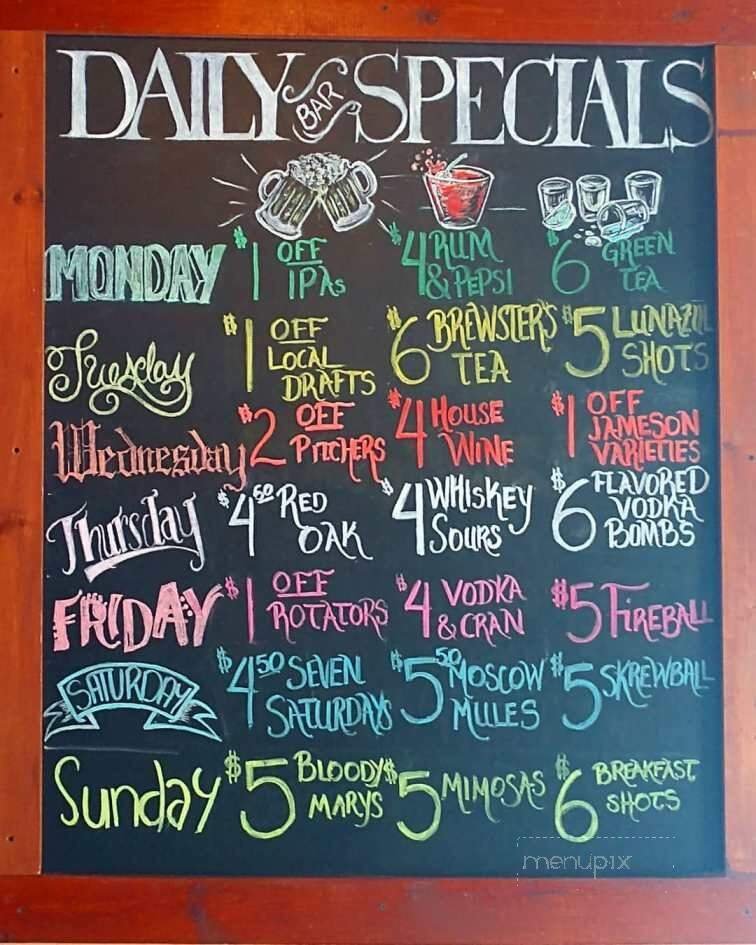 DAILY BAR SPECIALS
MONDAY $1 OFF IPAs $4 RUM & PEPSI $6 GREEN TEA
Tuesday $1 OFF LOCAL DRAFTS $6 BREWSTER'S TEA $5 LUNAZUL SHOTS
Wednesday $2 OFF PITCHERS $4 HOUSE WINE $1 OFF JAMESON VARIETIES
Thursday $4.50 RED OAK $4 WHISKEY SOURS $6 FLAVORED VODKA BOMBS
FRIDAY $1 OFF ROTATORS $4 VODKA & CRAN $5 FIREBALL
SATURDAY $4.50 SEVEN SATURDAYS $5.50 MOSCOW MULES $5 SKREWBALL
Sunday $5 BLOODY MARYS $5 MIMOSAS $6 BREAKFAST SHOTS
menupix